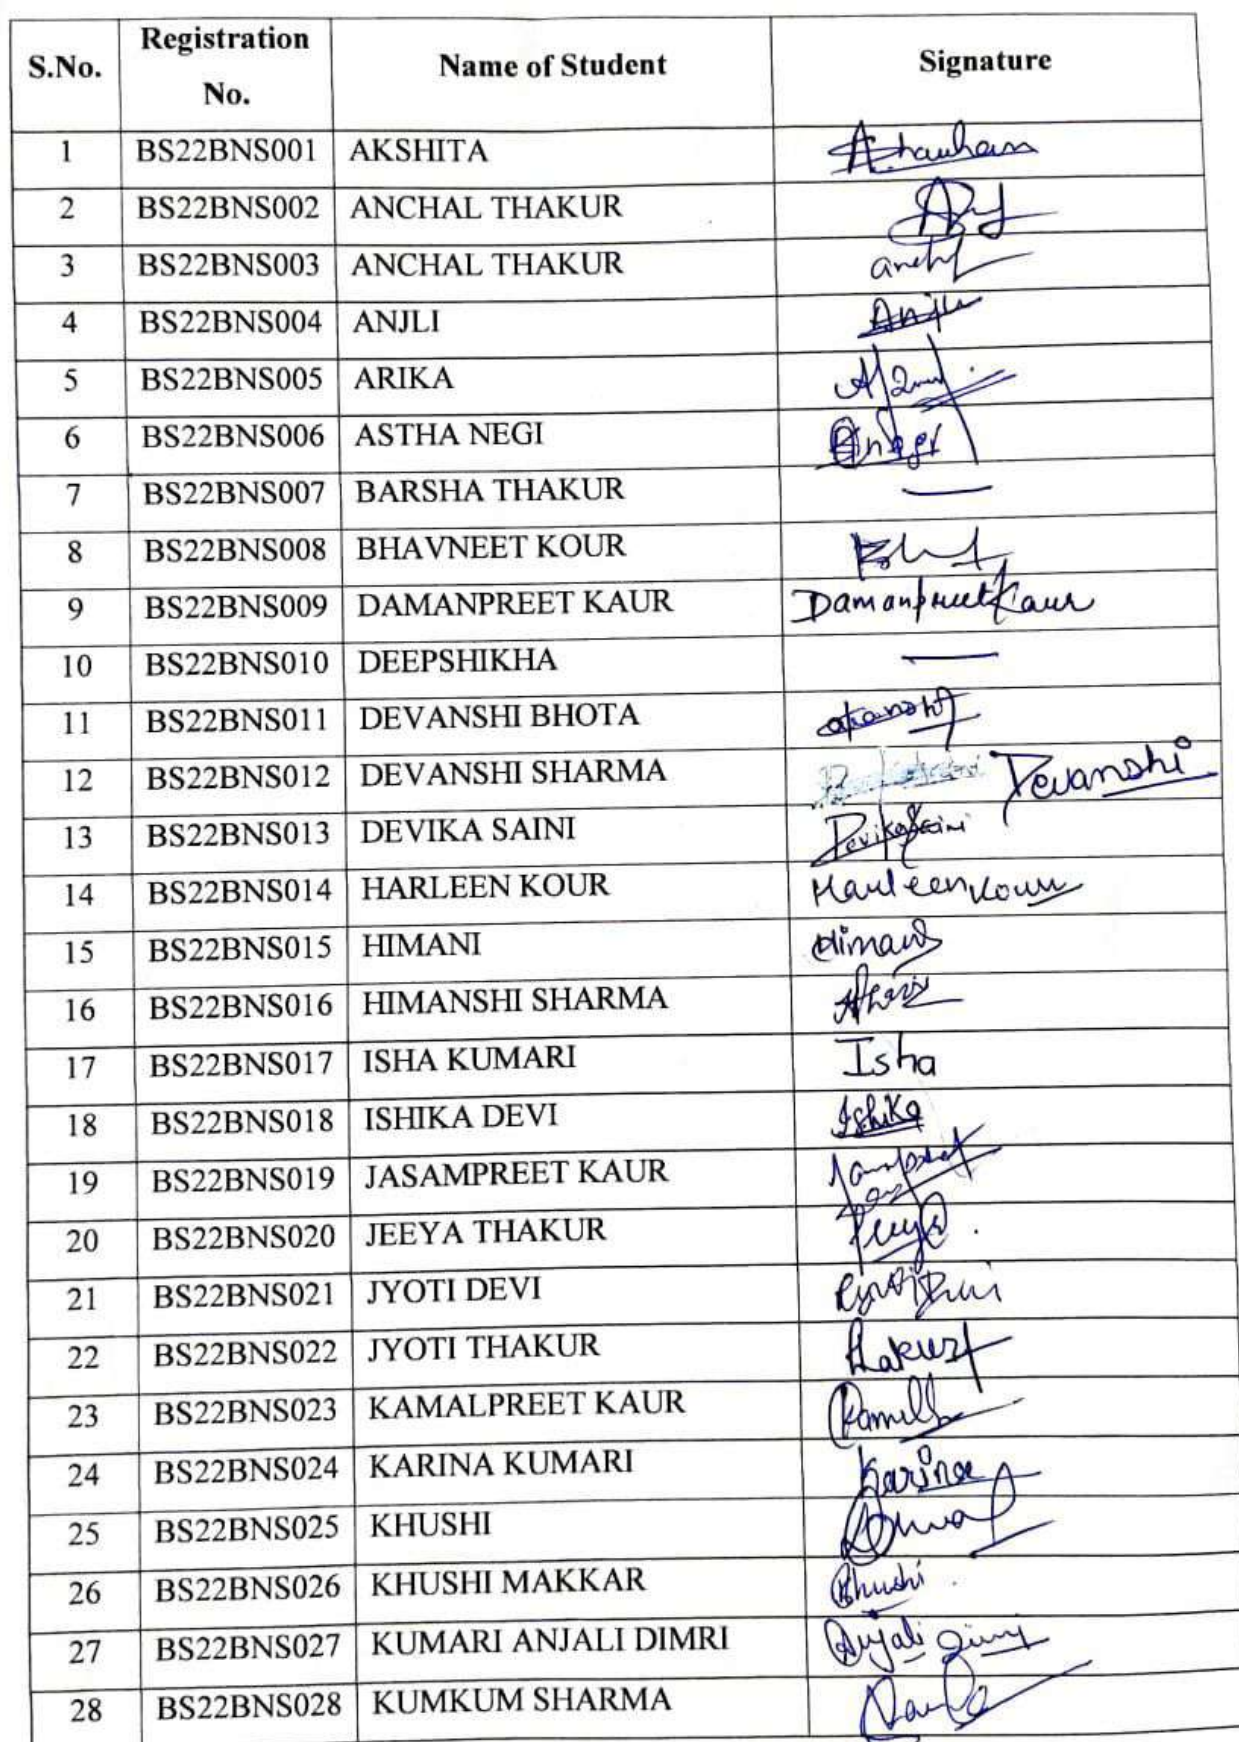 S.No. Registration No. Name of Student Signature
1 BS22BNS001 AKSHITA
2 BS22BNS002 ANCHAL THAKUR
3 BS22BNS003 ANCHAL THAKUR
4 BS22BNS004 ANJLI
5 BS22BNS005 ARIKA
6 BS22BNS006 ASTHA NEGI
7 BS22BNS007 BARSHA THAKUR —
8 BS22BNS008 BHAVNEET KOUR
9 BS22BNS009 DAMANPREET KAUR Damanpreet Kaur
10 BS22BNS010 DEEPSHIKHA —
11 BS22BNS011 DEVANSHI BHOTA
12 BS22BNS012 DEVANSHI SHARMA Devanshi
13 BS22BNS013 DEVIKA SAINI Devika Saini
14 BS22BNS014 HARLEEN KOUR Harleen Kour
15 BS22BNS015 HIMANI Himani
16 BS22BNS016 HIMANSHI SHARMA
17 BS22BNS017 ISHA KUMARI Isha
18 BS22BNS018 ISHIKA DEVI Ishika
19 BS22BNS019 JASAMPREET KAUR
20 BS22BNS020 JEEYA THAKUR
21 BS22BNS021 JYOTI DEVI Jyoti Devi
22 BS22BNS022 JYOTI THAKUR
23 BS22BNS023 KAMALPREET KAUR
24 BS22BNS024 KARINA KUMARI Karina
25 BS22BNS025 KHUSHI
26 BS22BNS026 KHUSHI MAKKAR Khushi
27 BS22BNS027 KUMARI ANJALI DIMRI Anjali
28 BS22BNS028 KUMKUM SHARMA